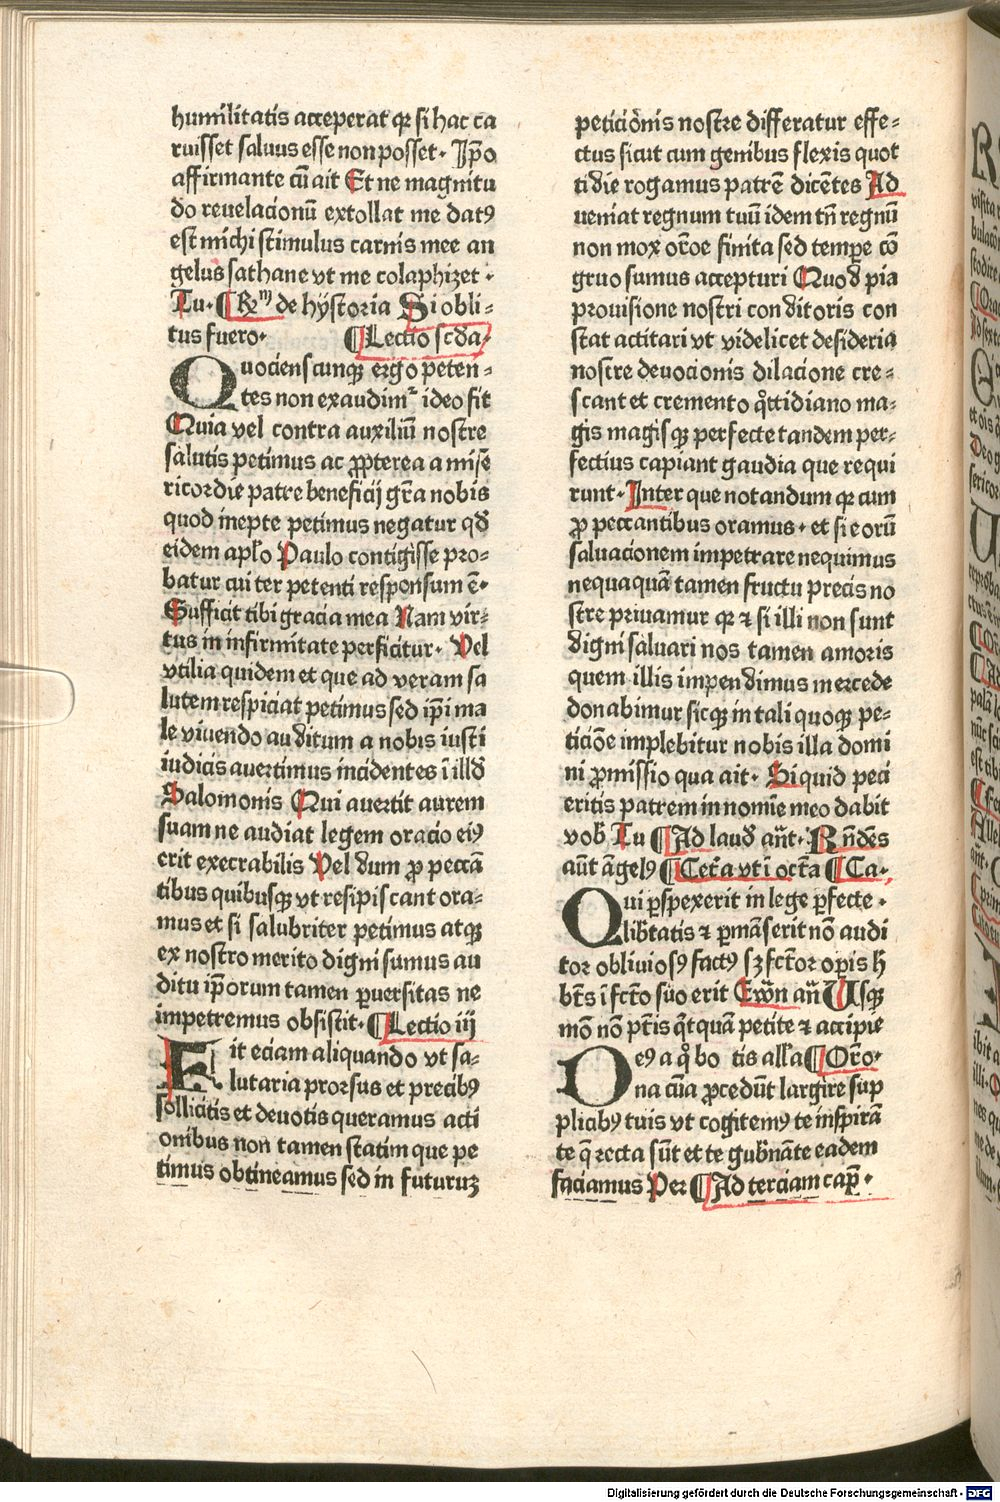 humilitatis acceperat qꝛ si hac ca
ruisset saluus esse non posset· Ip̄o
affirmante cū ait Et ne magnitu
do reuelacionū extollat me datꝰ
est michi stimulus carnis mee an
gelus sathane vt me colaphizet·
Tu· ¶ R̄m de hystoria Si obli⸗
tus fuero· ¶ Lectio scd̄a·
Quociens cunqꝫ ergo peten⸗
tes non exaudimᷣ ideo fit
Quia vel contra auxiliū nostre
salutis petimus ac ꝓpterea a mise
ricordie patre beneficij gr̄a nobis
quod inepte petimus negatur qd̄
eidem apl̓o Paulo contigisse pro⸗
batur cui ter petenti responsum ē·
Sufficit tibi gracia mea Nam vir⸗
tus in infirmitate perficitur· Vel
vtilia quidem et que ad veram sa
lutem respiciat petimus sed ip̄i ma
le viuendo auditum a nobis iusti
iudicis auertimus incidentes ī illd̄
Salomonis Qui auertit aurem
suam ne audiat legem oracio eiꝰ
erit execrabilis Vel dum ꝓ peccā
tibus quibusqꝫ vt resipiscant ora⸗
mus et si salubriter petimus atqꝫ
ex nostro merito digni sumus au
ditu ip̄orum tamen ꝑuersitas ne
impetremus obsistit· ¶ Lectio iij
Fit eciam aliquando vt sa⸗
lutaria prorsus et precibꝰ
sollicitis et deuotis queramus acti
onibus non tamen statim que pe
timus obtineamus sed in futuruꝫ
peticiōnis nostre differatur effe⸗
ctus sicut cum genibus flexis quot
tidie rogamus patrē dicētes Ad
ueniat regnum tuū idem tn̄ regnū
non mox or̄oe finita sed tempe cō
gruo sumus accepturi Quod pia
prouisione nostri conditoris con
stat actitari vt videlicet desideria
nostre deuocionis dilacione cre⸗
scant et cremento qͦttidiano ma⸗
gis magisqꝫ perfecte tandem per⸗
fectius capiant gaudia que requi
runt· Inter que notandum qꝛ cum
ꝓ peccantibus oramus· et si eorū
saluacionem impetrare nequimus
nequaquā tamen fructu precis no
stre priuamur qꝛ ⁊ si illi non sunt
digni saluari nos tamen amoris
quem illis impendimus mercede
donabimur sicqꝫ in tali quoqꝫ pe⸗
ticiōe implebitur nobis illa domi
ni ꝓmissio qua ait· Si quid peci
eritis patrem in nomīe meo dabit
vob̄ Tu ¶ Ad laud̄ an̄t· Rn̄des
an̄t āgelꝰ ¶ Cet̄a vt ī oct̄a ¶ Ca·
Qui ꝑspexerit in lege ꝑfecte·
lib̄tatis ⁊ ꝑmāserit nō audi
tor obliviosꝰ factꝰ sꝫ fc̄tor oꝑis h̄
bt̄s ī fc̄to suo erit Ew̄n an̄ Usqꝫ
mō nō pt̄is qͥtquā petite ⁊ accipie
tis all̄a ¶ Or̄o·
Deꝰ a qͦ bo
na cūa ꝓcedūt largire sup
plicibꝰ tuis vt cogitemꝰ te inspirā
te q̄ recta sūt et te gub̄nāte eadem
faciamus Per ¶ Ad terciam cap̄·
Digitalisierung gefördert durch die Deutsche Forschungsgemeinschaft - DFG